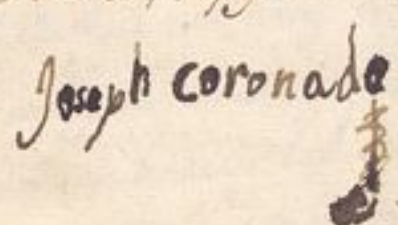 Joseph coronado